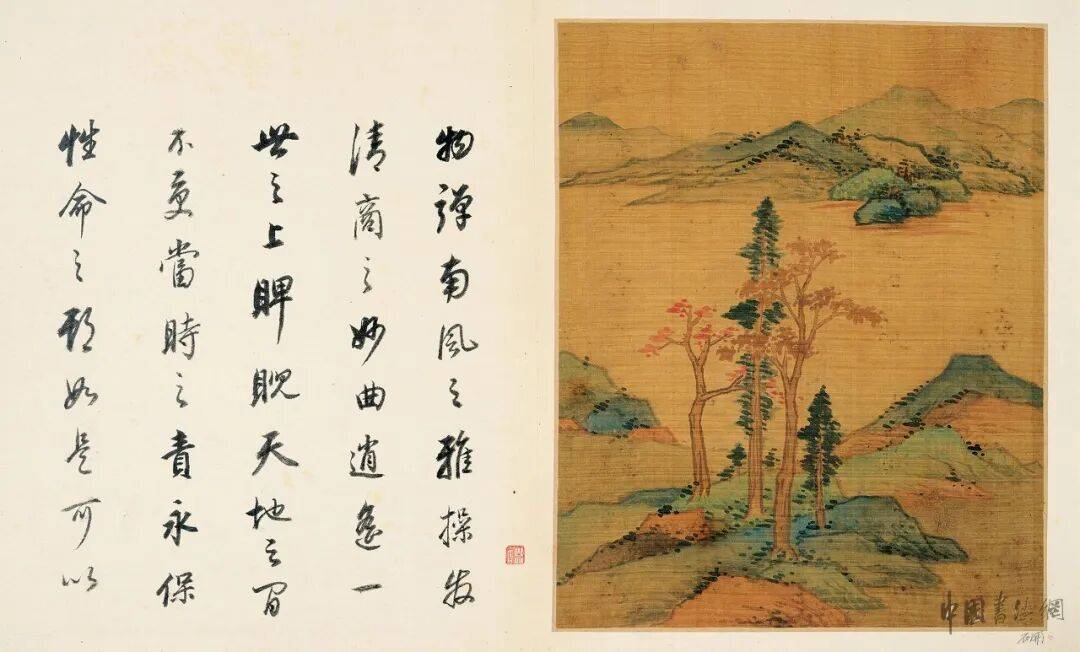 物彈南風之雅操發
清商之妙曲逍遙一
世之上睥睨天地之間
不受當時之責永保
性命之期如是可以
中国书法網